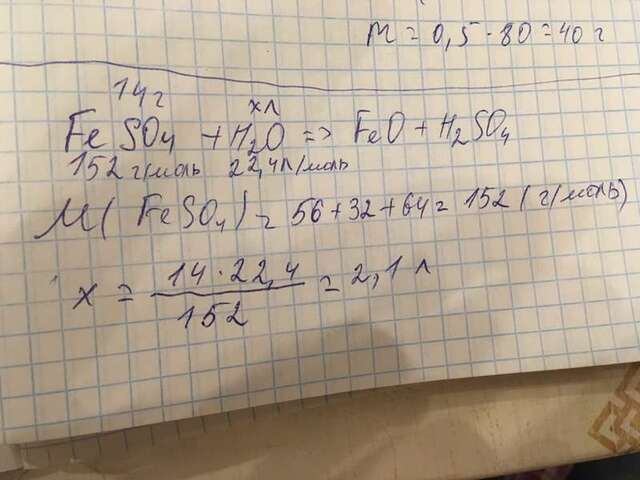 m = 0,5 · 80 = 40 г
14 г
x л
FeSO4 + H2O => FeO + H2SO4
152 г/моль 22,4 л/моль
M ( FeSO4 ) = 56 + 32 + 64 = 152 ( г/моль)
x = 14 · 22,4 / 152 = 2,1 л